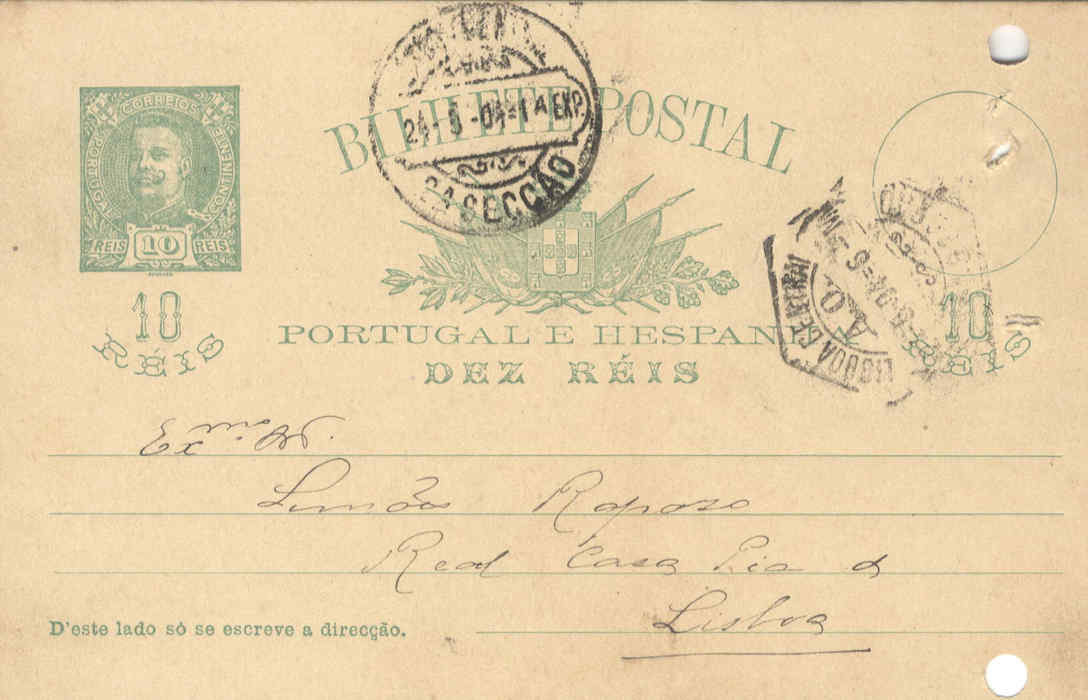 CORREIOS
PORTUGAL CONTINENTE
REIS 10 REIS
10
RÉIS
BILHETE POSTAL
24-5-04-1A EXP.
2A SECÇÃO
PORTUGAL E HESPANHA
DEZ RÉIS
LISBOA CENTRAL
A.O.
10
RÉIS
Exmo. Sr.
Simões Raposo
Real Casa Pia de
Lisboa
D'este lado só se escreve a direcção.